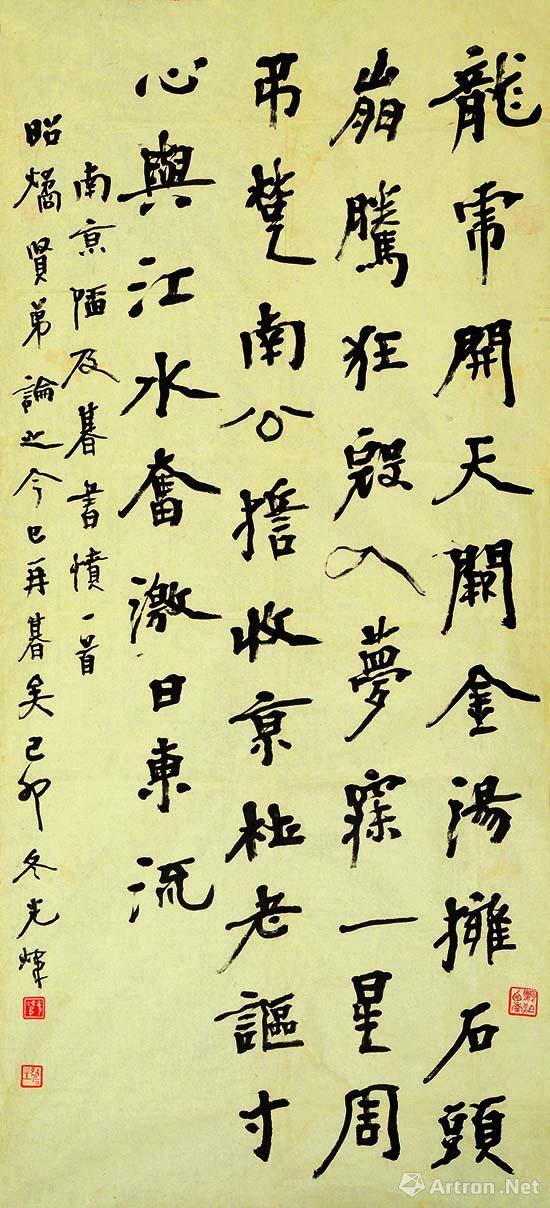 龍虎開天闕金湯擁石頭
崩騰狂寇入夢寐一星周
弔楚南公擔收京杜老謳寸
心與江水奮激日東流
南京陷及朞書憤一首
昭燏賢弟論之今已再朞矣己卯冬光煒
Artron.Net